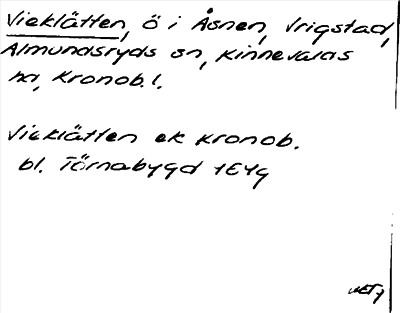 Vieklätten, ö i Åsnen, Vrigstad,
Almundsryds sn, Kinnevalds
hd, Kronob.l.
Vieklätten ek Kronob.
bl. Törnabygd 1E4g